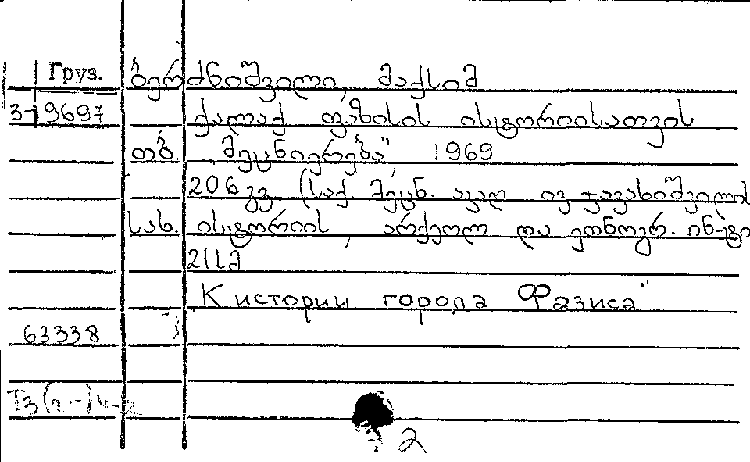 Груз. ბერძნიშვილი, მაქსიმ
3-19697 ქალაქ ფაზისის ისტორიისათვის
თბ. „მეცნიერება" 1969
206 გვ. (საქ. მეცნ. აკად. ივ. ჯავახიშვილის
სახ. ისტორიის, არქეოლ. და ეთნოგრ. ინ-ტი
21სმ
К истории города Фазиса"
63338
2